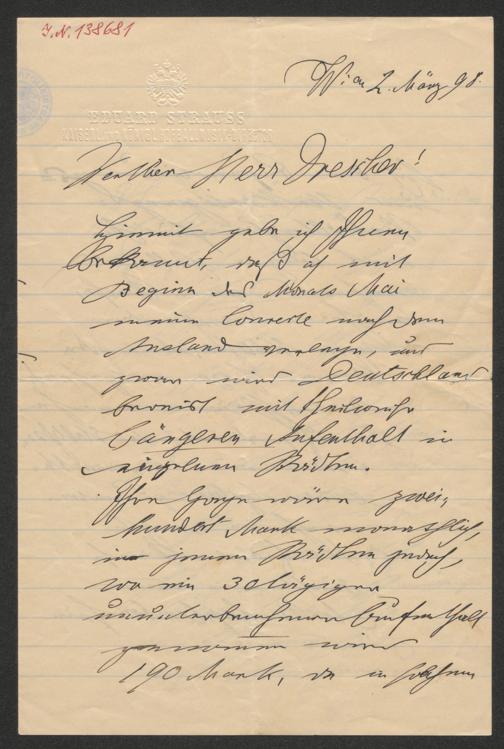 J.N. 138681
Wien 2. März 98.
EDUARD STRAUSS
KAISERL. UND KÖNIGL. HOFBALLMUSIK-DIREKTOR
Werther Herr Drescher!
Hiermit gebe ich Ihnen
bekannt, daß ich mit
Beginn des Monats Mai
meine Concerte nach dem
Ausland verlege, und
zwar wird Deutschland
bereist mit theilweise
längeren Aufenthalt in
einzelnen Städten.
Ihre Gage wäre zwei-
hundert Mark monatlich,
in jenen Städten jedoch,
wo ein 30tägiger
ununterbrochener Aufenthalt
genommen wird
190 Mark, da in solchem